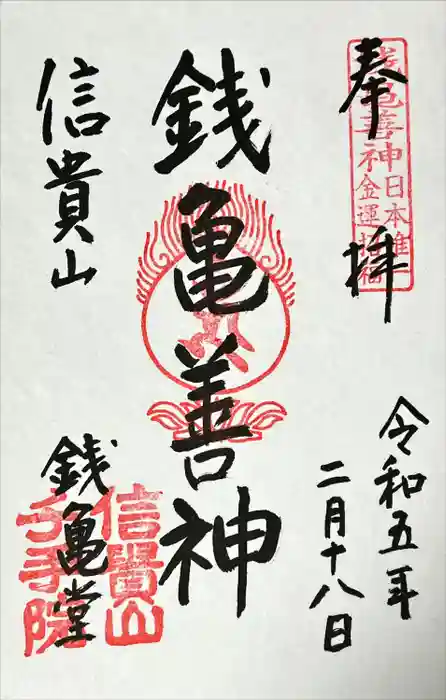 奉拝
銭亀善神日本唯一
金運招福
令和五年
二月十八日
銭亀善神
信貴山
銭亀堂
信貴山
千手院